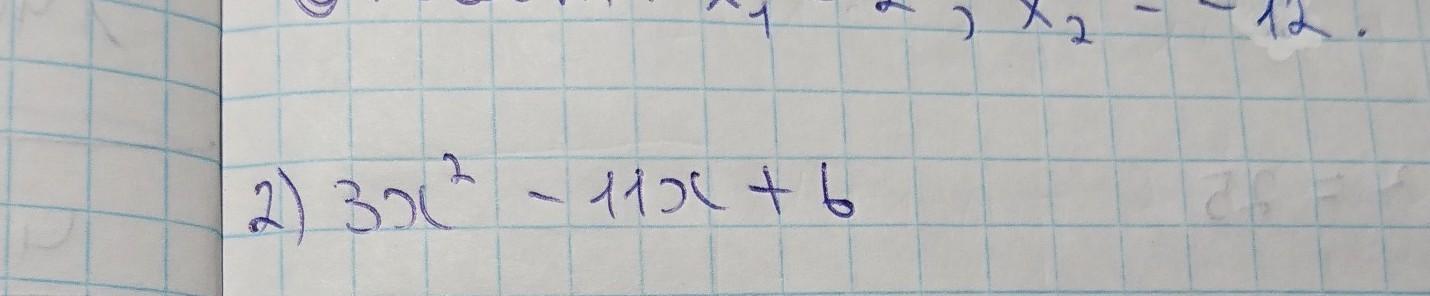 x₁ 2 , x₂ = -12.
2) 3x² - 11x + 6